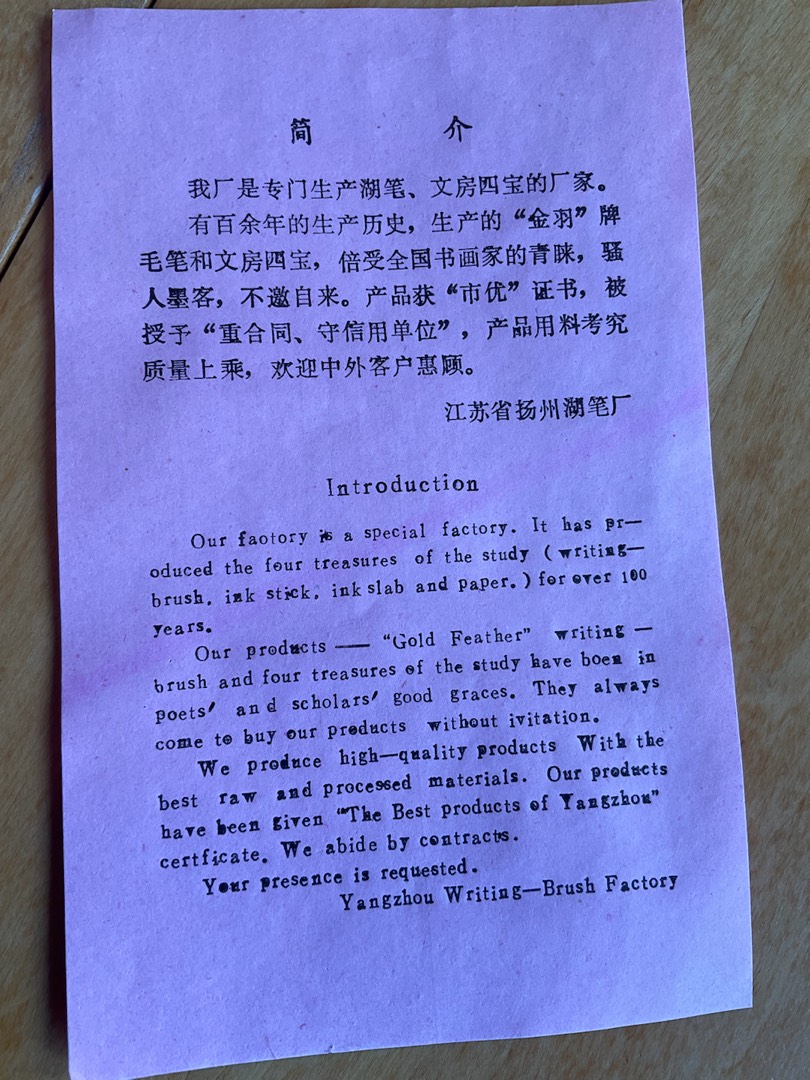 简 介
我厂是专门生产湖笔、文房四宝的厂家。
有百余年的生产历史，生产的“金羽”牌
毛笔和文房四宝，倍受全国书画家的青睐，骚
人墨客，不邀自来。产品获“市优”证书，被
授予“重合同、守信用单位”，产品用料考究
质量上乘，欢迎中外客户惠顾。
江苏省扬州湖笔厂
Introduction
Our faotory is a special factory. It has pr—
oduced the four treasures of the study ( writing—
brush, ink stick, ink slab and paper. ) for over 100
years.
Our products —— “Gold Feather” writing —
brush and four treasures of the study have boen in
poets' and scholars' good graces. They always
come to buy our products without ivitation.
We produce high—quality products With the
best raw and processed materials. Our products
have been given “The Best products of Yangzhou”
certficate. We abide by contracts.
Your presence is requested.
Yangzhou Writing—Brush Factory